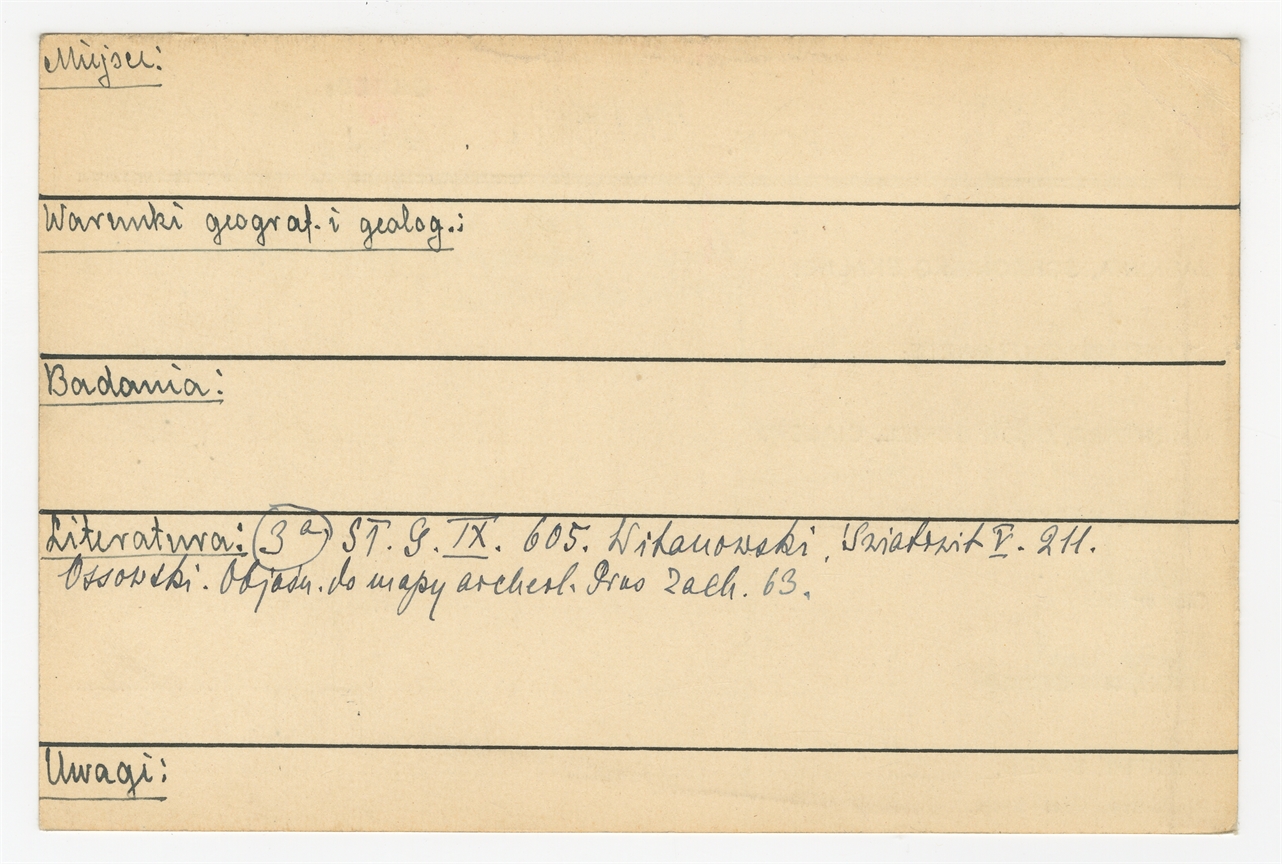 Miejsce:
Warunki geograf. i geolog.:
Badania:
Literatura: 3a) SŁ. G. IX. 605. Witanowski, Światowit V. 211.
Ossowski. Objaśn. do mapy archeol. Prus Zach. 63.
Uwagi: